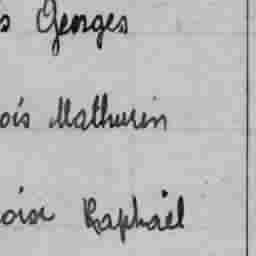 s Georges
ois Mathurin
oise Raphaël